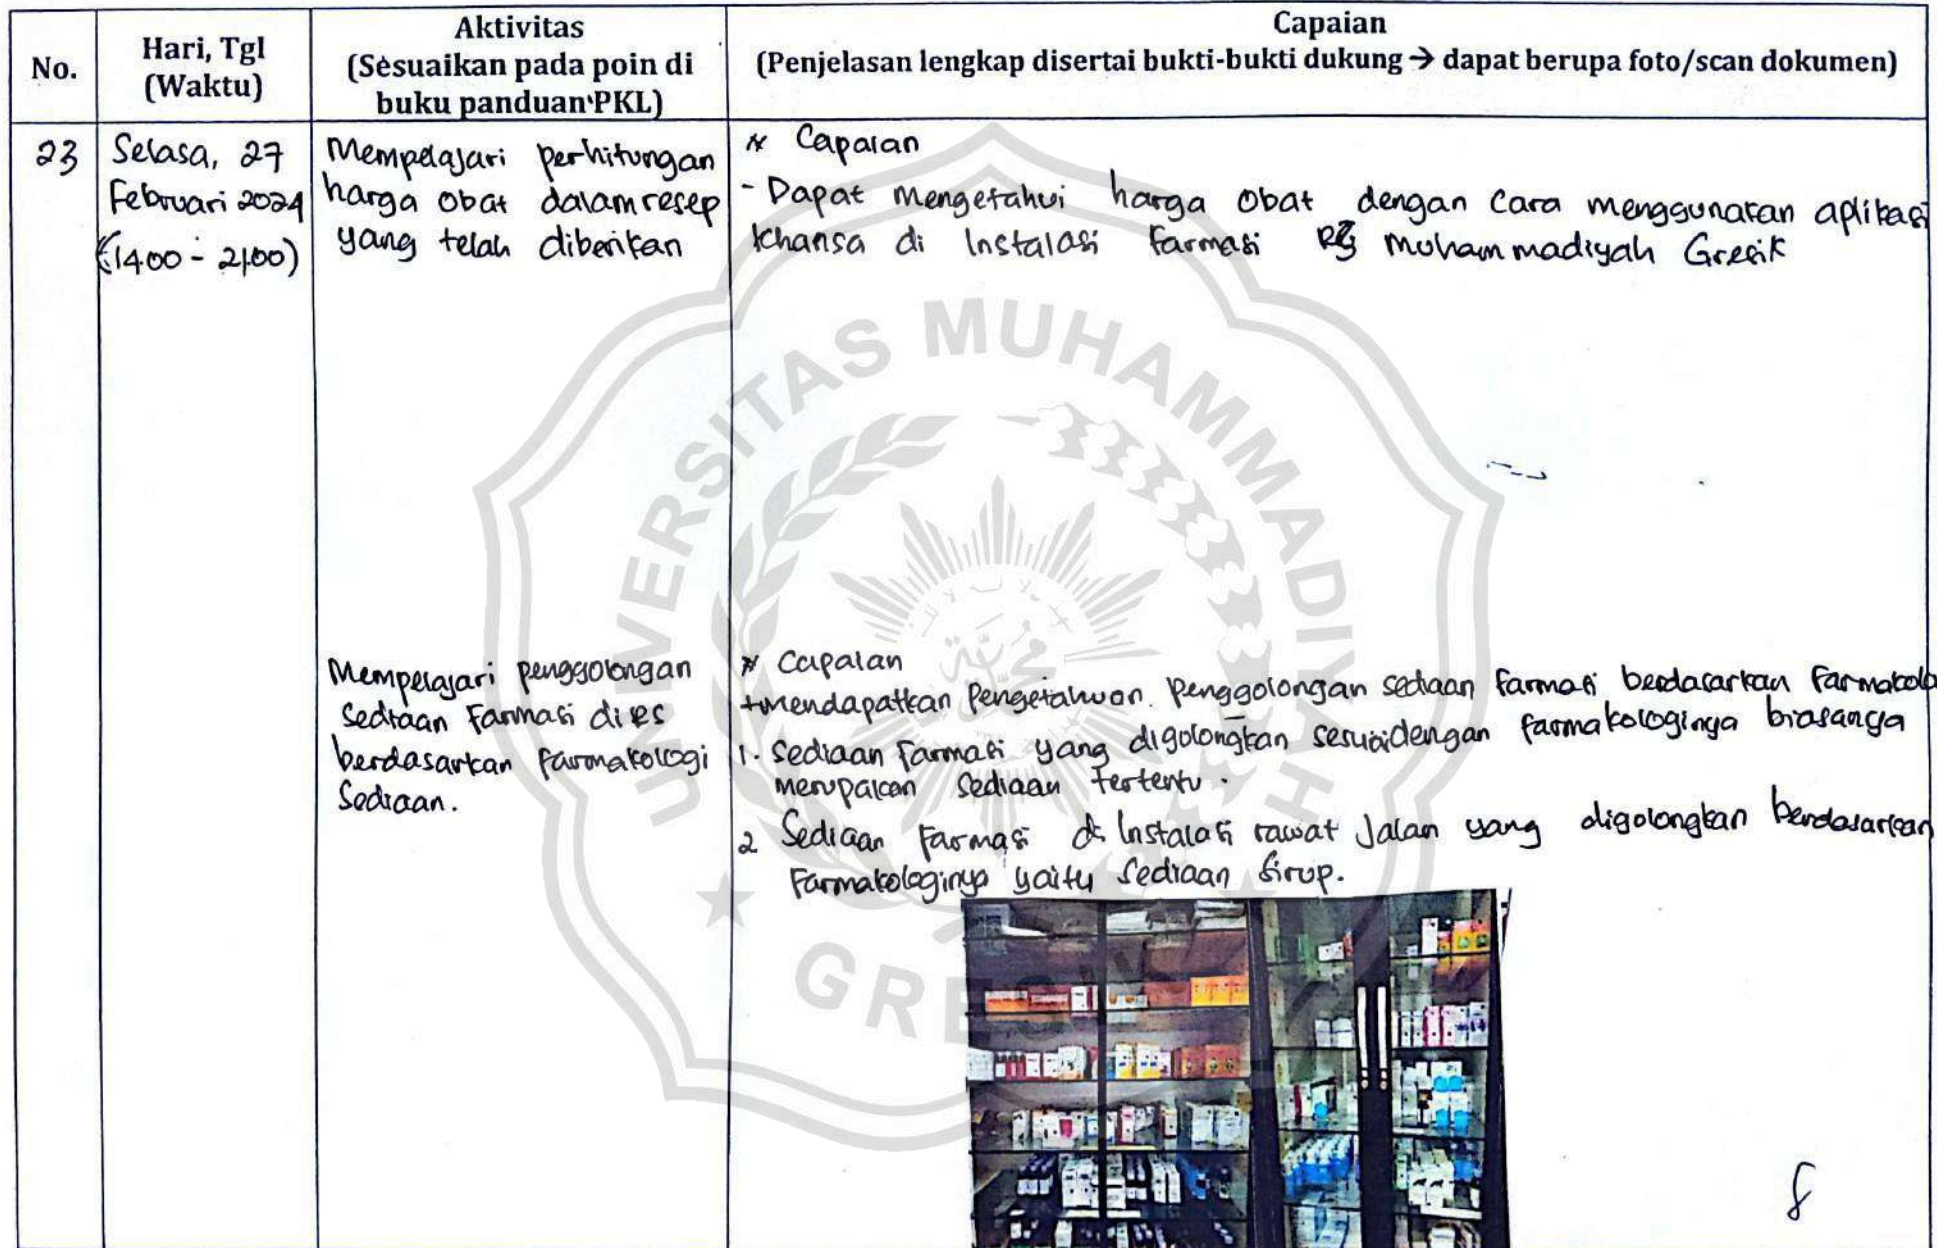 No.
Hari, Tgl
(Waktu)
Aktivitas
(Sesuaikan pada poin di
buku panduan PKL)
Capaian
(Penjelasan lengkap disertai bukti-bukti dukung → dapat berupa foto/scan dokumen)
23
Selasa, 27
Februari 2024
(1400 - 21.00)
Mempelajari perhitungan
harga obat dalam resep
yang telah diberikan
* Capaian
- Dapat mengetahui harga obat dengan cara menggunakan aplikasi
khansa di Instalasi Farmasi RS Muhammadiyah Gresik
Mempelajari penggolongan
Sediaan Farmasi di RS
berdasarkan farmakologi
Sediaan.
* Capaian
Mendapatkan Pengetahuan. Penggolongan sediaan farmasi berdasarkan Farmakolo
1. Sediaan Farmasi yang digolongkan sesuai dengan farmakologinya biasanya
merupakan Sediaan tertentu.
2 Sediaan Farmasi di Instalasi rawat Jalan yang digolongkan berdasarkan
Farmakologinya yaitu Sediaan Sirup.
UNIVERSITAS MUHAMMADIYAH
GRESIK